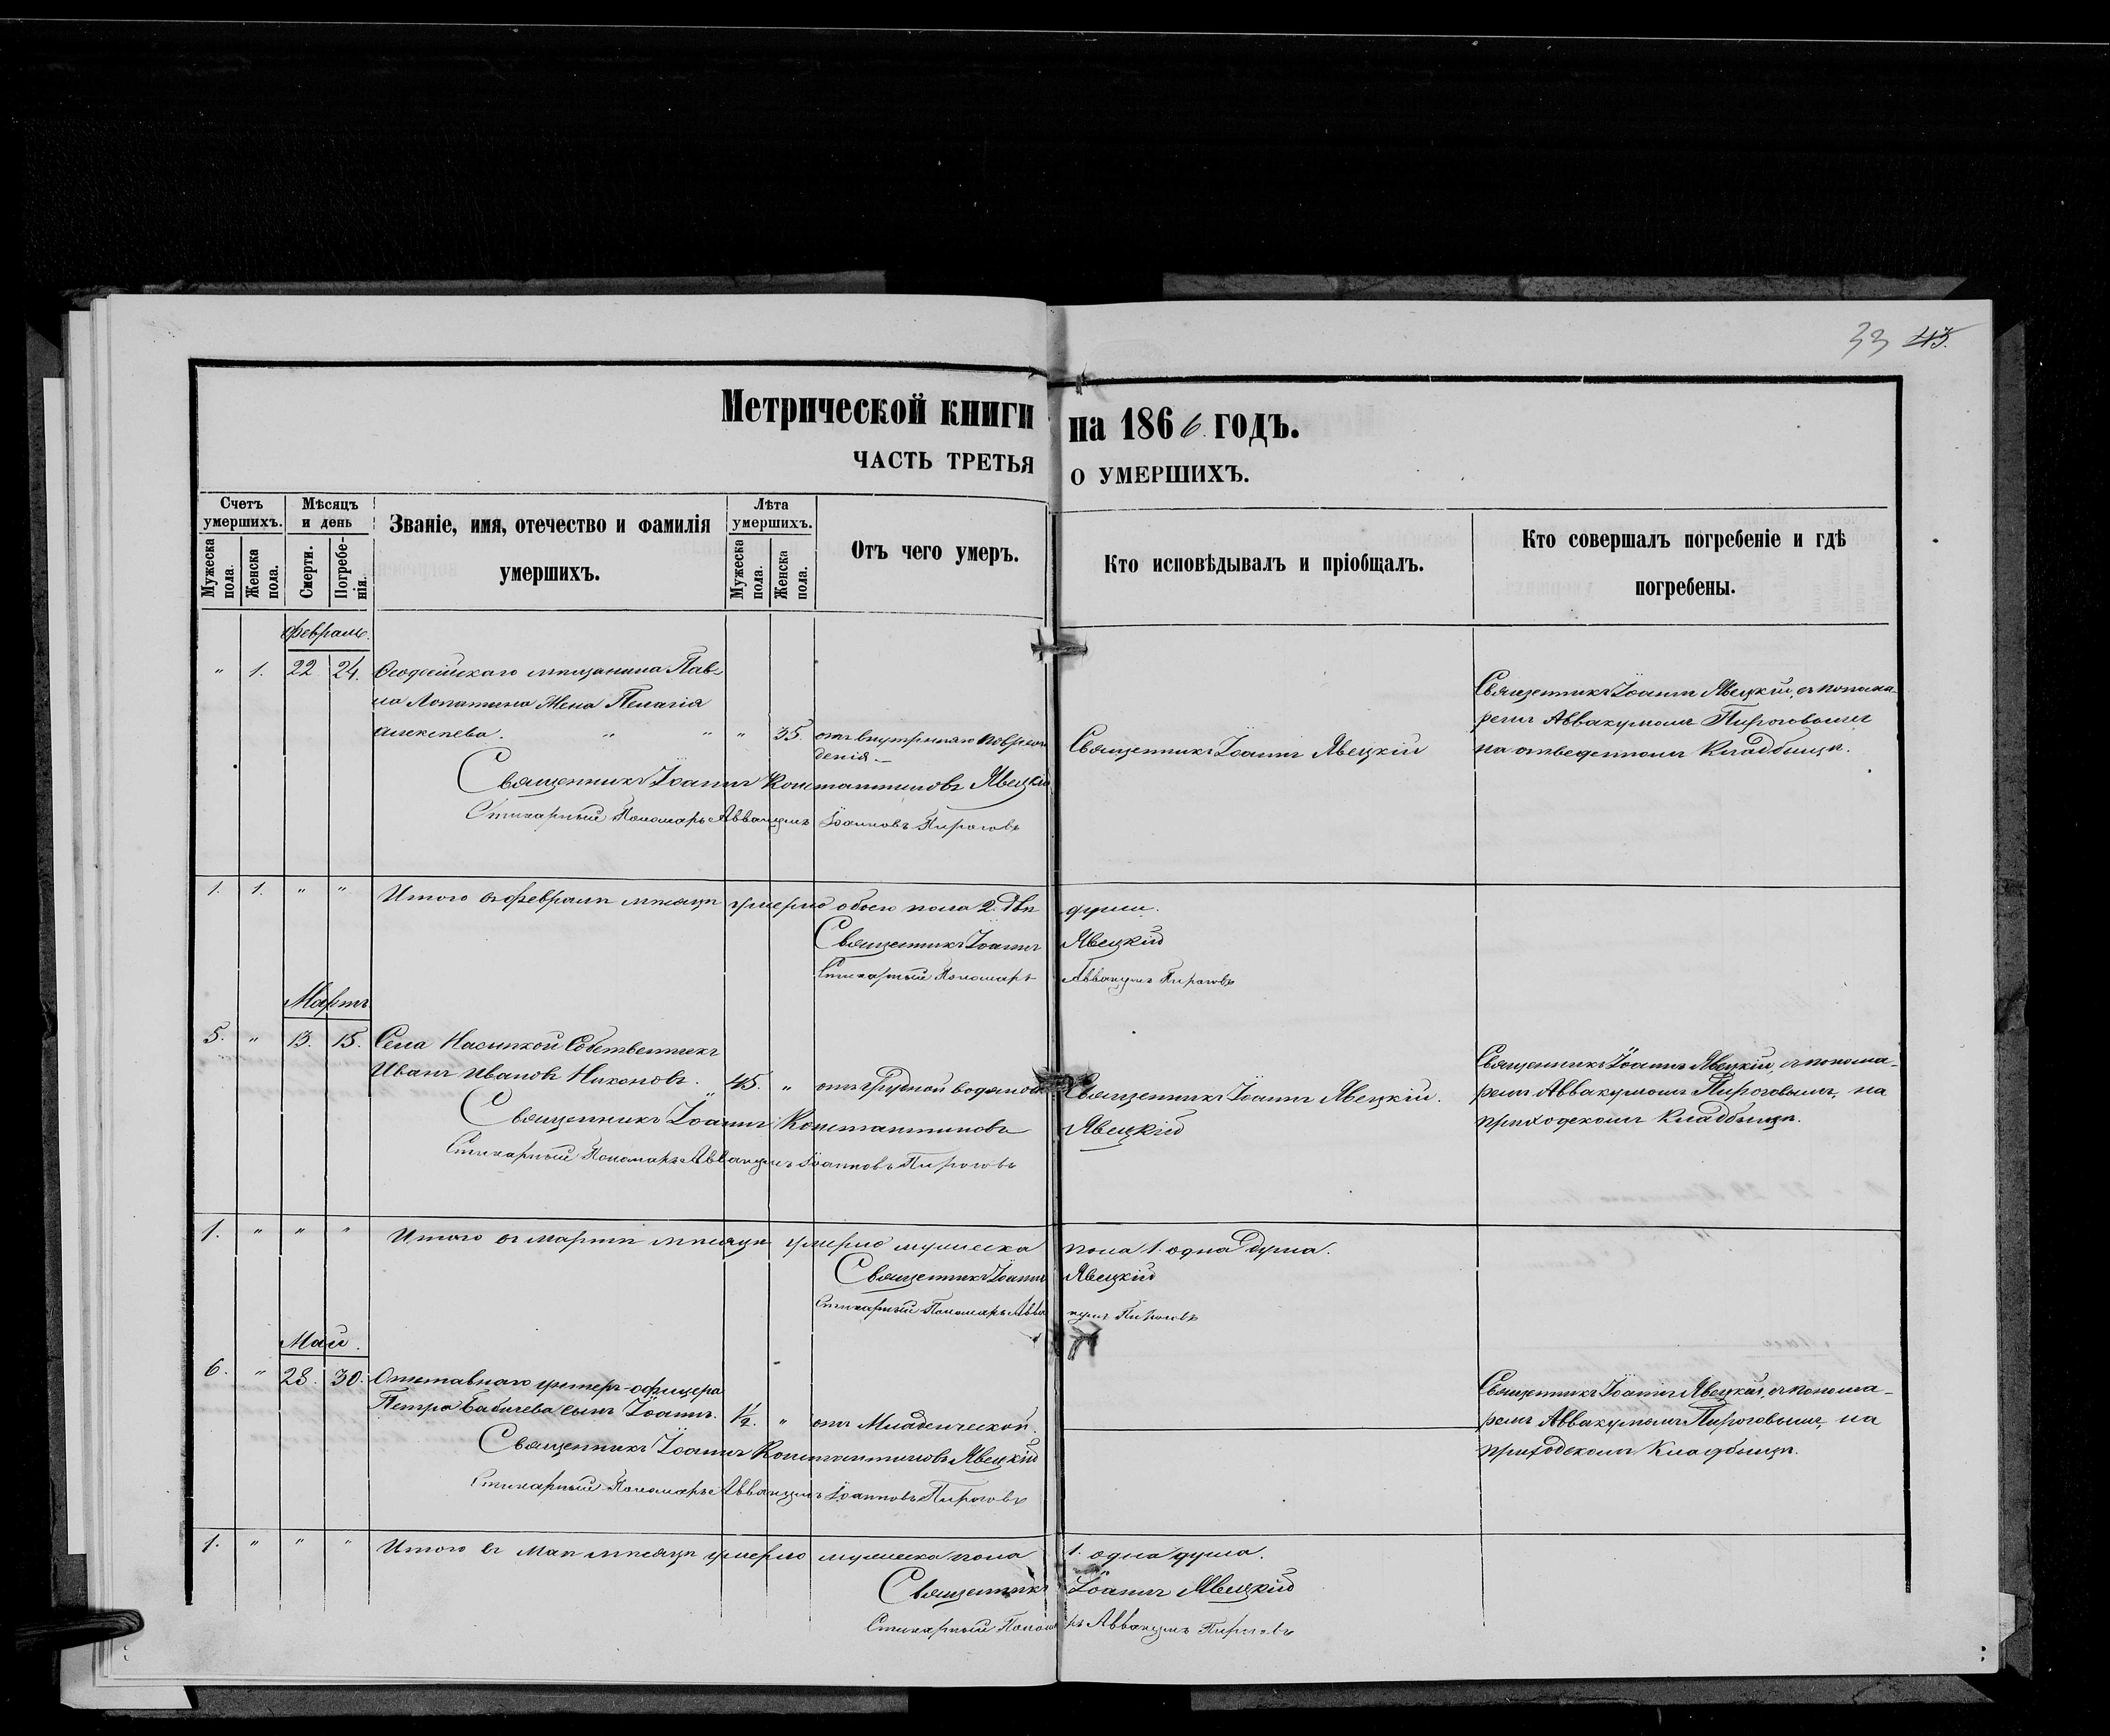 33 43.
Метрической книги на 1866. годъ.
ЧАСТЬ ТРЕТЬЯ О УМЕРШИХЪ.
Счетъ умершихъ.
Мѣсяцъ и день
Званіе, имя, отечество и фамилія умершихъ.
Лѣта умершихъ.
Отъ чего умеръ.
Кто исповѣдывалъ и пріобщалъ.
Кто совершалъ погребеніе и гдѣ погребены.
Мужеска пола.
Женска пола.
Смерти.
Погребенія.
Мужеска пола.
Женска пола.
Февраль.
" 1. 22 24. Ѳеодосійскаго мѣщанина Пав-
ла Лопатина жена Пелагія
Алексѣева. " " " 35. отъ внутренняго поврежденія.
Священникъ Іоаннъ Явецкій
Священникъ Іоаннъ Явецкій, съ понома-
ремъ Аввакумомъ Пироговымъ
на отведенномъ кладбищѣ.
Священникъ Іоаннъ Константиновъ Явецкій
Стихарный Пономарь Аввакумъ Іоанновъ Пироговъ
1. 1. " " Итого въ февралѣ мѣсяцѣ умерло обоего пола 2. двѣ души.
Священникъ Іоаннъ Явецкій
Стихарный Пономарь Аввакумъ Пироговъ
Мартъ
5. " 13. 15. Села Насыпкой Собственникъ
Иванъ Ивановъ Никоновъ. 45. " отъ грудной водяной
Священникъ Іоаннъ Явецкій.
Священникъ Іоаннъ Явецкій, съ понома-
ремъ Аввакумомъ Пироговымъ, на
приходскомъ кладбищѣ.
Священникъ Іоаннъ Константиновъ Явецкій
Стихарный Пономарь Аввакумъ Іоанновъ Пироговъ
1. " " " Итого въ мартѣ мѣсяцѣ умерло мужеска пола 1. одна душа.
Священникъ Іоаннъ Явецкій
Стихарный Пономарь Аввакумъ Пироговъ
Май.
6. " 28. 30. Отставнаго унтеръ-офицера
Петра Бабичева сынъ Іоаннъ. 1/2. " отъ Младенческой.
Священникъ Іоаннъ Явецкій, съ понома-
ремъ Аввакумомъ Пироговымъ, на
приходскомъ кладбищѣ.
Священникъ Іоаннъ Константиновъ Явецкій
Стихарный Пономарь Аввакумъ Іоанновъ Пироговъ
1. " " " Итого въ Маѣ мѣсяцѣ умерло мужеска пола 1. одна душа.
Священникъ Іоаннъ Явецкій
Стихарный Пономарь Аввакумъ Пироговъ